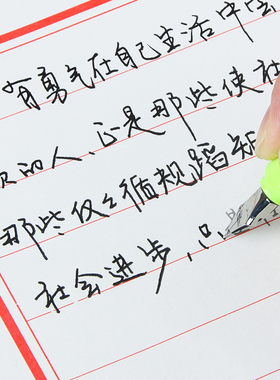 有勇气在自己生活中
的人,正是那些使社
那些仅仅循规蹈矩
社会进步,